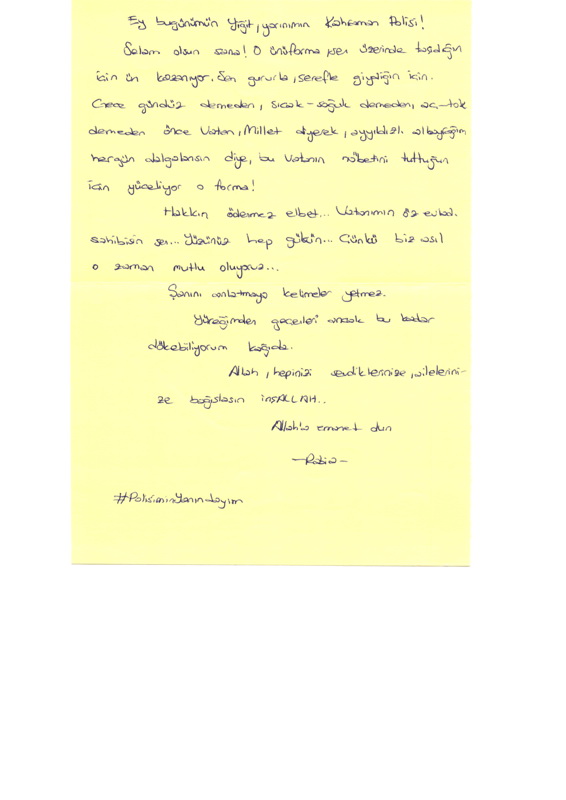 Ey bugünümün yiğit, yarınımın Kahraman Polisi!
Selam olsun sana! O üniforma, sen üzerinde taşıdığın
için ün kazanıyor. Sen gururla, şerefle giydiğin için.
Gece gündüz demeden, sıcak-soğuk demeden, aç-tok
demeden önce Vatan, Millet diyerek, ayyıldızlı albayrağım
hergün dalgalansın diye, bu Vatanın nöbetini tuttuğun
için yüceliyor o forma!
Hakkın ödenmez elbet... Vatanımın öz evladı,
sahibisin sen... Yüzünüz hep gülsün... Çünkü biz asıl
o zaman mutlu oluyoruz...
Şanını anlatmaya kelimeler yetmez.
Yüreğimden geçenleri ancak bu kadar
dökebiliyorum kağıda.
Allah, hepinizi sevdiklerinize, ailelerini-
ze bağışlasın inşALLAH..
Allah'a emanet olun
-Rabia-
#PolisiminYanındayım